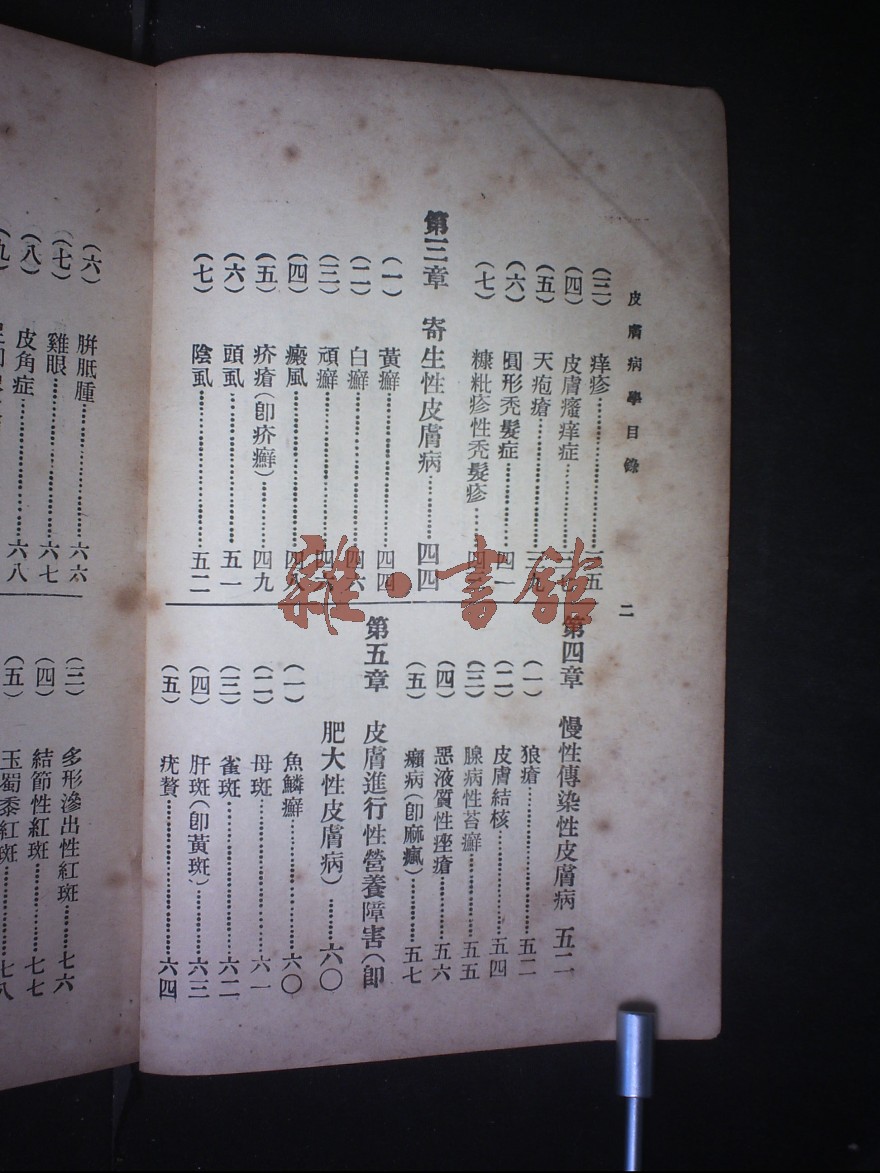 皮膚病學目錄
二
(三) 痒疹…………三五
(四) 皮膚瘙痒症…………三七
(五) 天疱瘡…………三九
(六) 圓形禿髮症…………四一
(七) 糠粃疹性禿髮疹…………四三
第三章 寄生性皮膚病…………四四
(一) 黃癬…………四四
(二) 白癬…………四六
(三) 頑癬…………四六
(四) 癜風…………四八
(五) 疥瘡(卽疥癬)…………四九
(六) 頭虱…………五一
(七) 陰虱…………五二
第四章 慢性傳染性皮膚病 五二
(一) 狼瘡…………五二
(二) 皮膚結核…………五四
(三) 腺病性苔癬…………五五
(四) 惡液質性痤瘡…………五六
(五) 癩病(卽麻瘋)…………五七
第五章 皮膚進行性營養障害(卽
肥大性皮膚病)…………六〇
(一) 魚鱗癬…………六〇
(二) 母斑…………六一
(三) 雀斑…………六二
(四) 肝斑(卽黃斑)…………六三
(五) 疣贅…………六四
(六) 胼胝腫…………六六
(七) 雞眼…………六七
(八) 皮角症…………六八
(九)
(三) 多形滲出性紅斑…………七六
(四) 結節性紅斑…………七七
(五) 玉蜀黍紅斑…………七八
雜·書館